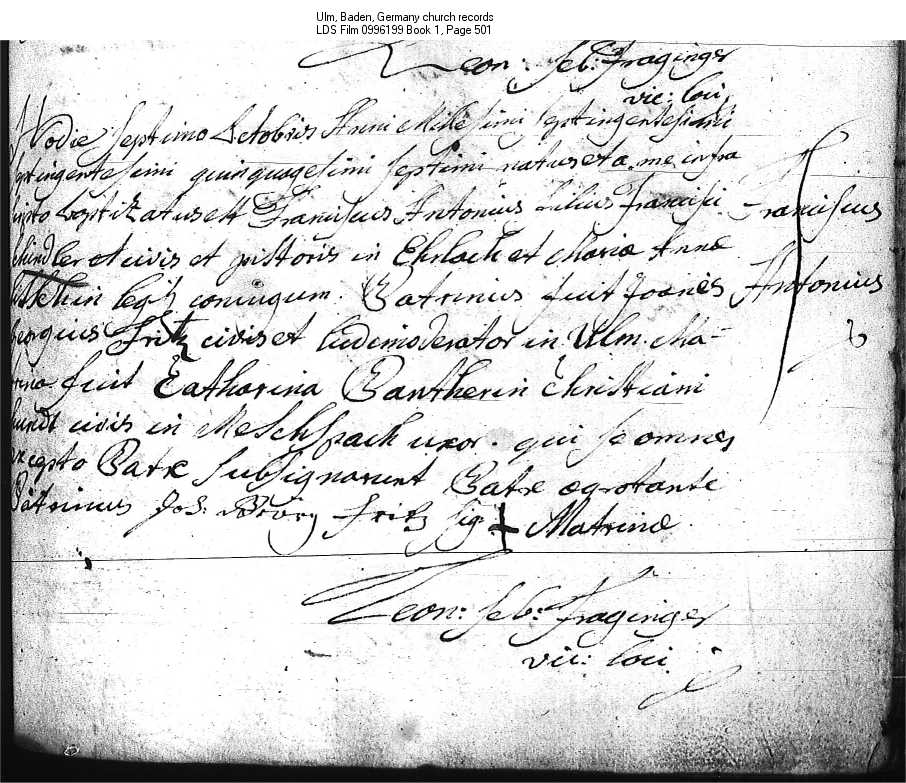 Ulm, Baden, Germany church records
LDS Film 0996199 Book 1, Page 501
Leon: Seb: Fraginger
vic: loci
Hodie Septimo Octobris Anni Millesimi Septingentesimi
quinquagesimi septimi natus et a me infra
baptizatus est Franciscus Antonius filius Francisci
Franciscus
et civis et pistoris in Ehrlach et Mariæ Annæ
legit: coniugum. Patrinus fuit Joanes
Antonius
Fritz civis et ludimoderator in Ulm. Ma-
fuit Catharina Pantherin Christiani
civis in Meschpach uxor. qui se omnes
Patre subsignarunt Patre ægrotante
Patrinus Joh: Georg Fritz sig: + Matrinæ
Leon: Seb: Fraginger
vic: loci